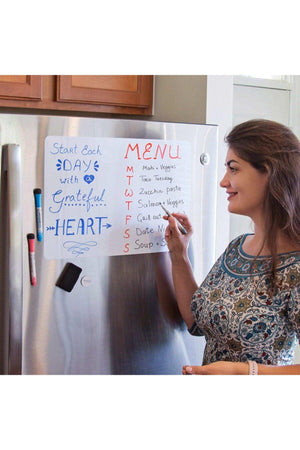 Start Each
DAY
with a
Grateful
HEART
MENU
M Mahi + Veggies
T Taco Tuesday
W Zucchini pasta
T Salmon + Veggies
F Girl out
S Date N
S Soup + S